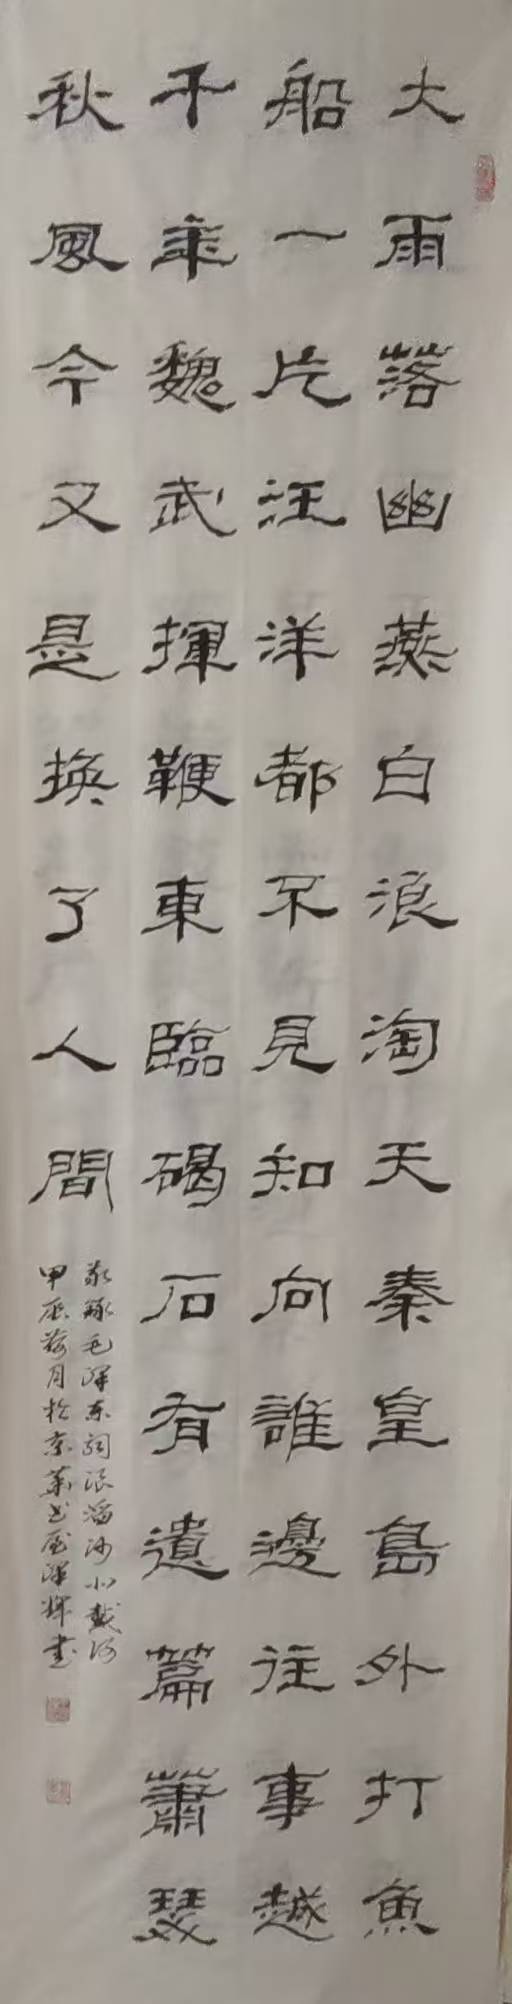 大雨落幽燕白浪淘天秦皇島外打魚
船一片汪洋都不見知向誰邊往事越
千年魏武揮鞭東臨碣石有遺篇蕭瑟
秋風今又是換了人間
敬錄毛澤東詞浪淘沙北戴河
甲辰荷月於京華書屋澤輝書